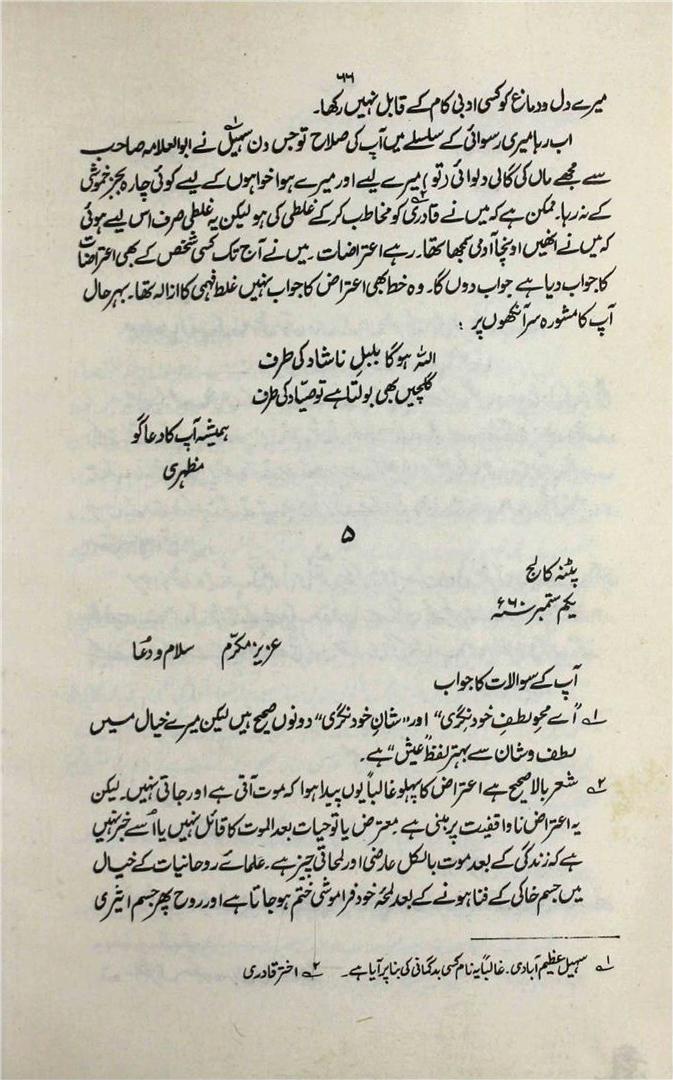 ۶۶
میرے دل و دماغ کو کسی ادبی کام کے قابل نہیں رکھا۔
اب رہا میری رسوائی کے سلسلے میں آپ کی صلاح تو جس دن سہیل۱ نے ابوالعلامہ صاحب
سے مجھے ماں کی گالی دلوائی (تو) میرے لیے اور میرے ہوا خواہوں کے لیے کوئی چارہ بجز خموشی
کے نہ رہا۔ ممکن ہے کہ میں نے قادری۲ کو مخاطب کرکے غلطی کی ہو لیکن یہ غلطی صرف اس لیے ہوئی
کہ میں نے انھیں اونچا آدمی سمجھا تھا۔ رہے اعتراضات۔ میں نے آج تک کسی شخص کے بھی اعتراضات
کا جواب دیا ہے جواب دوں گا۔ وہ خط بھی اعتراض کا جواب نہیں غلط فہمی کا ازالہ تھا۔ بہر حال
آپ کا مشورہ سر آنکھوں پر :
اللہ ہوگا بلبلِ ناشاد کی طرف
گلچیں بھی بولتا ہے تو صیّاد کی طرف
ہمیشہ آپ کا دعاگو
مظہری
۵
پٹنہ کالج
یکم ستمبر ۶۰ء
عزیز مکرّم سلام و دُعا
آپ کے سوالات کا جواب
۱ "اے محوِ لطفِ خود نگری" اور "شانِ خود نگری" دونوں صحیح ہیں لیکن میرے خیال میں
لطف و شان سے بہتر لفظ "عیش" ہے۔
۲ شعر بالا صحیح ہے اعتراض کا پہلو غالباً یوں پیدا ہوا کہ موت آتی ہے اور جاتی نہیں۔ لیکن
یہ اعتراض ناواقفیت پر مبنی ہے۔ معترض یا تو حیات بعد الموت کا قائل نہیں یا اُسے خبر نہیں
ہے کہ زندگی کے بعد موت بالکل عارضی اور لمحاتی چیز ہے۔ علمائے روحانیات کے خیال
میں جسم خاکی کے فنا ہونے کے بعد لمحۂ خود فراموشی ختم ہو جاتا ہے اور روح پھر جسم اثیری
۱ سہیل عظیم آبادی۔ غالباً یہ نام کسی بدگمانی کی بنا پر آیا ہے۔ ۲ اختر قادری